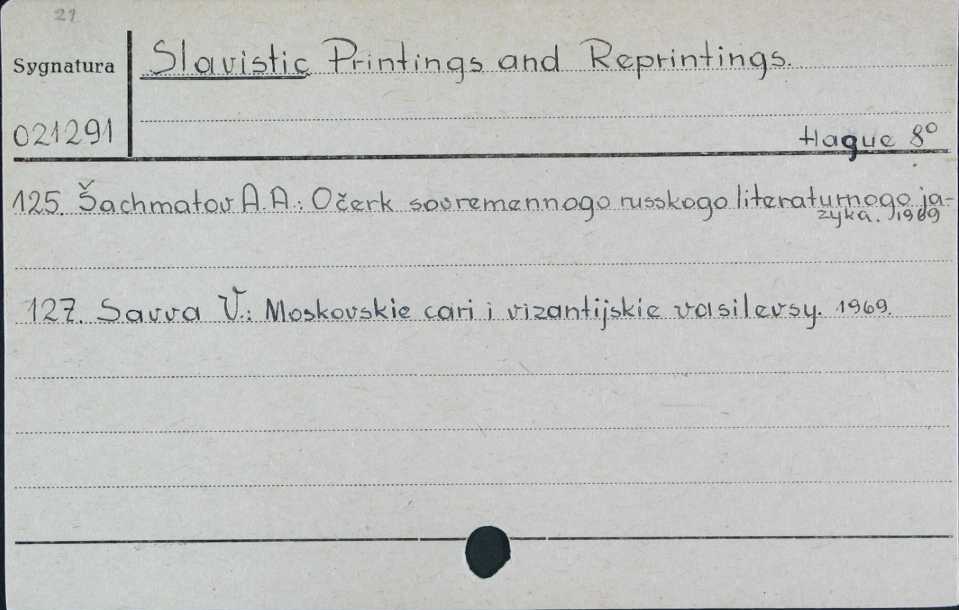 21
Slavistic Printings and Reprintings.
Sygnatura
021291
Hague 8°
125. Šachmatov A.A.: Očerk sovremennogo russkogo literaturnogo ja-
zyka. 1969
127. Savva V.: Moskovskie cari i vizantijskie vasilevsy. 1969.